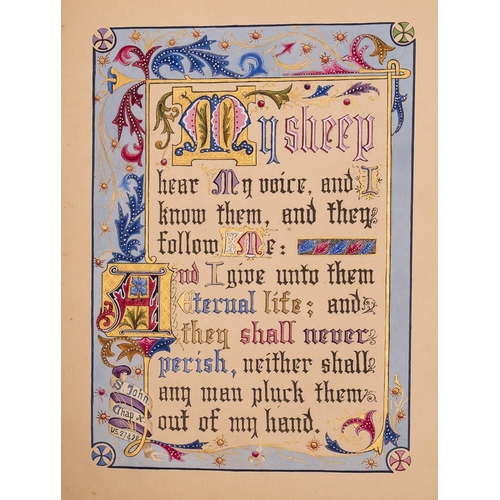 My sheep
hear My voice, and I
know them, and they
follow Me:
And I give unto them
Eternal life; and
they shall never
perish, neither shall
any man pluck them
out of my hand.
St John
Chap X.
vs. 27 & 28